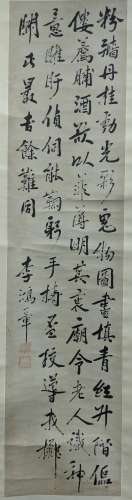 粉牆丹柱動光彩鬼物圖畫填青紅升階傴
僂薦脯酒欲以菲薄明其衷廟令老人識神
意睢盱偵伺能鞠躬手持盃珓導我擲
此最吉餘難同
李鴻章